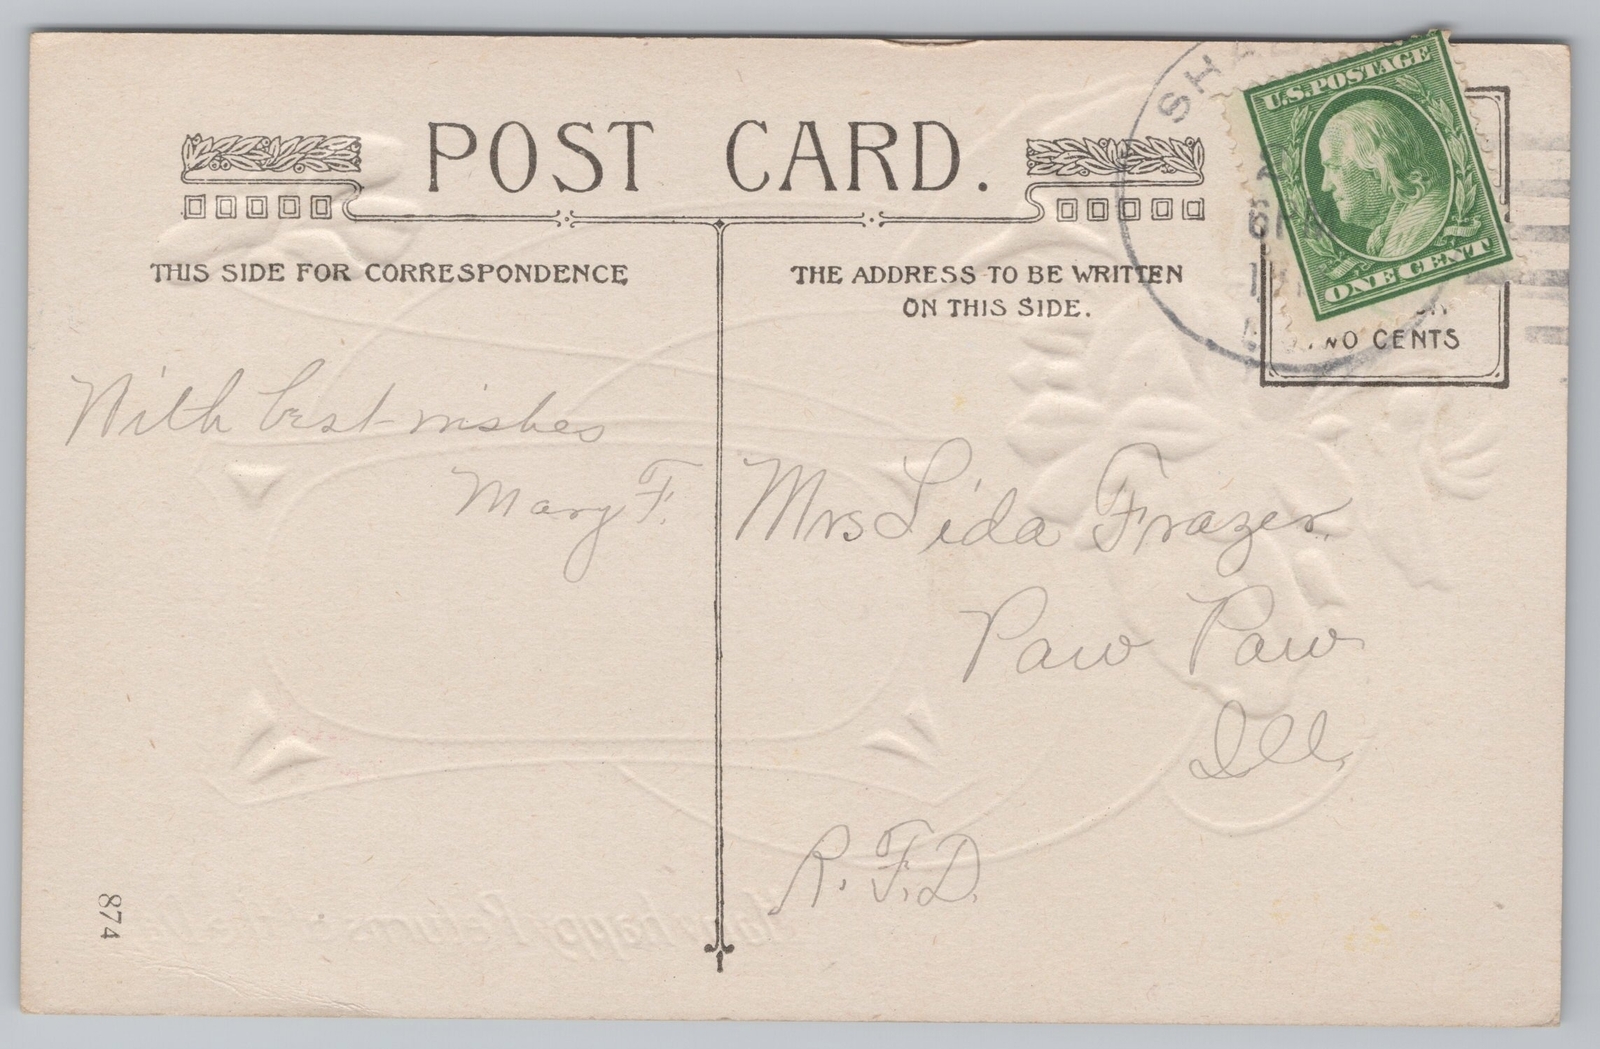 POST CARD.
THIS SIDE FOR CORRESPONDENCE
THE ADDRESS TO BE WRITTEN
ON THIS SIDE.
U.S. POSTAGE
ONE CENT
CENTS
With best wishes
Mary F.
Mrs Lida Frazer
Paw Paw
Ill.
R. F. D.
874
Many happy Returns of the Day